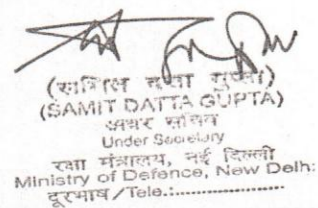 (समित दत्ता गुप्ता)
(SAMIT DATTA GUPTA)
अवर सचिव
Under Secretary
रक्षा मंत्रालय, नई दिल्ली
Ministry of Defence, New Delhi:
दूरभाष/Tele.:..................